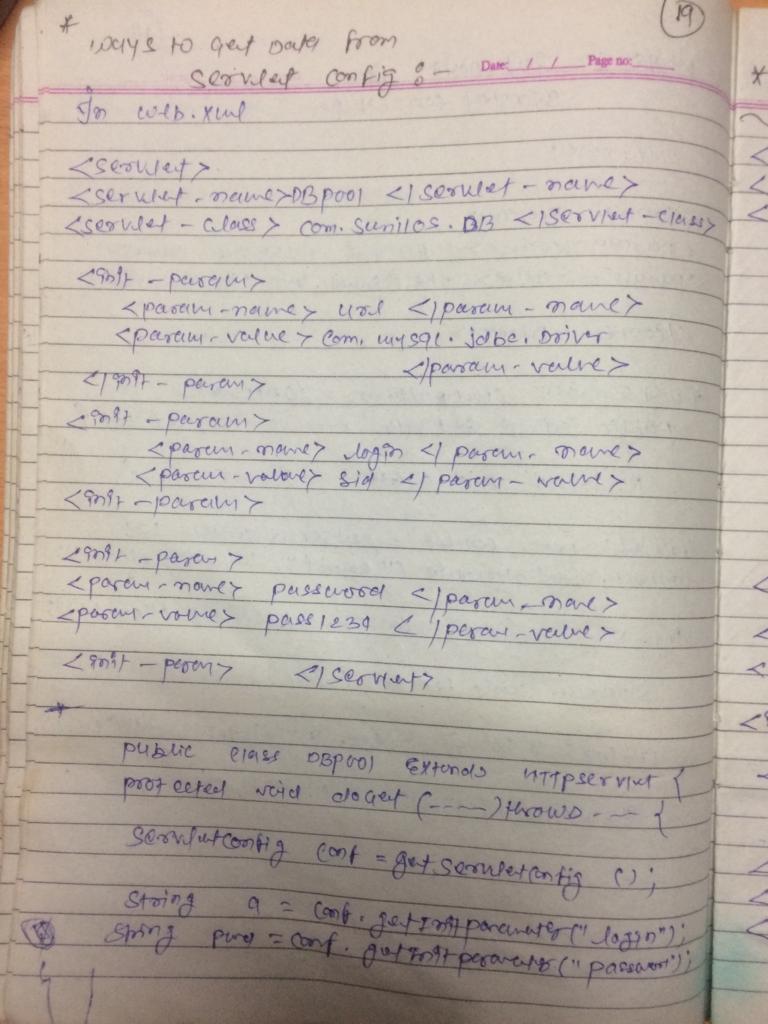 19
* ways to get Data from
Servlet config :-
Date: / / Page no:
In web.xml
<servlet>
<servlet-name>DBPool </servlet-name>
<servlet-class> com.sunilos.DB </servlet-class>
<init-param>
<param-name> url </param-name>
<param-value> com.mysql.jdbc.Driver
</param-value>
</init-param>
<init-param>
<param-name> login </param-name>
<param-value> sid </param-value>
<init-param>
<init-param>
<param-name> password </param-name>
<param-value> pass1234 </param-value>
<init-param> </servlet>
*
public class DBPool extends HttpServlet {
protected void doGet (-----) throws --- {
ServletConfig conf = get.ServletConfig ();
String a = conf.getInitparameter("login");
String pwd = conf.getInitparameter("password");